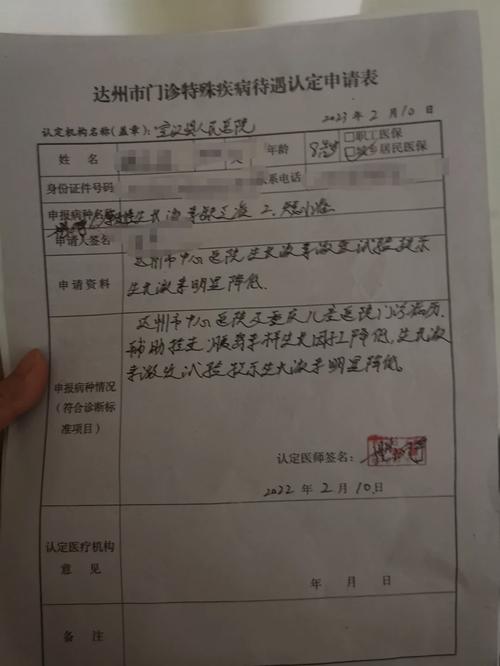 达州市门诊特殊疾病待遇认定申请表
认定机构名称(盖章): 宣汉县人民医院 2023年2月10日
姓 名 年龄 8岁 □职工医保
□城乡居民医保
身份证件号码 联系电话
申报病种名称 生长激素缺乏症 2.
申请人签名
申请资料 达州市中心医院生长激素激发试验提示
生长激素明显降低.
达州市中心医院及重庆儿童医院门诊病历.
辅助检查:胰岛素样生长因子降低,生长激
素激发试验提示生长激素明显降低.
申报病种情况
(符合诊断标
准项目)
认定医师签名:
2022年2月10日
认定医疗机构
意 见
年 月 日
备 注